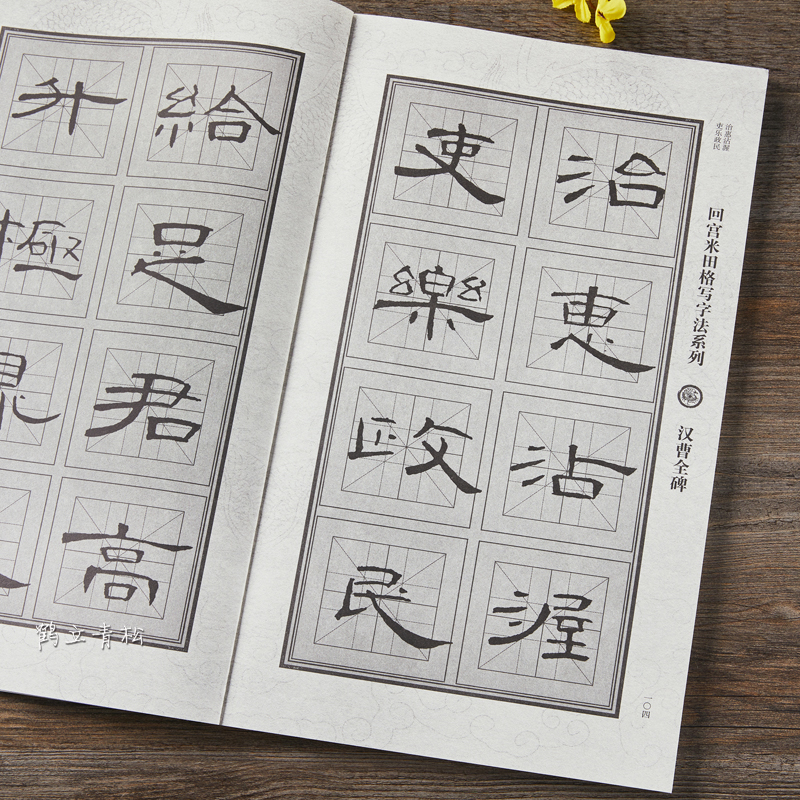 治惠沾渥
吏乐政民
回宫米田格写字法系列
汉曹全碑
治惠沾渥
吏樂政民
一〇四
給足君高
升極
鹤立青松